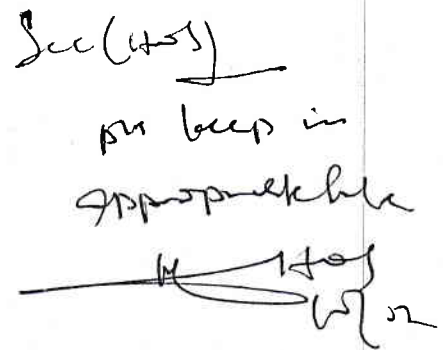 Sec (HoS)
pls keep in
appropriate file
HoS